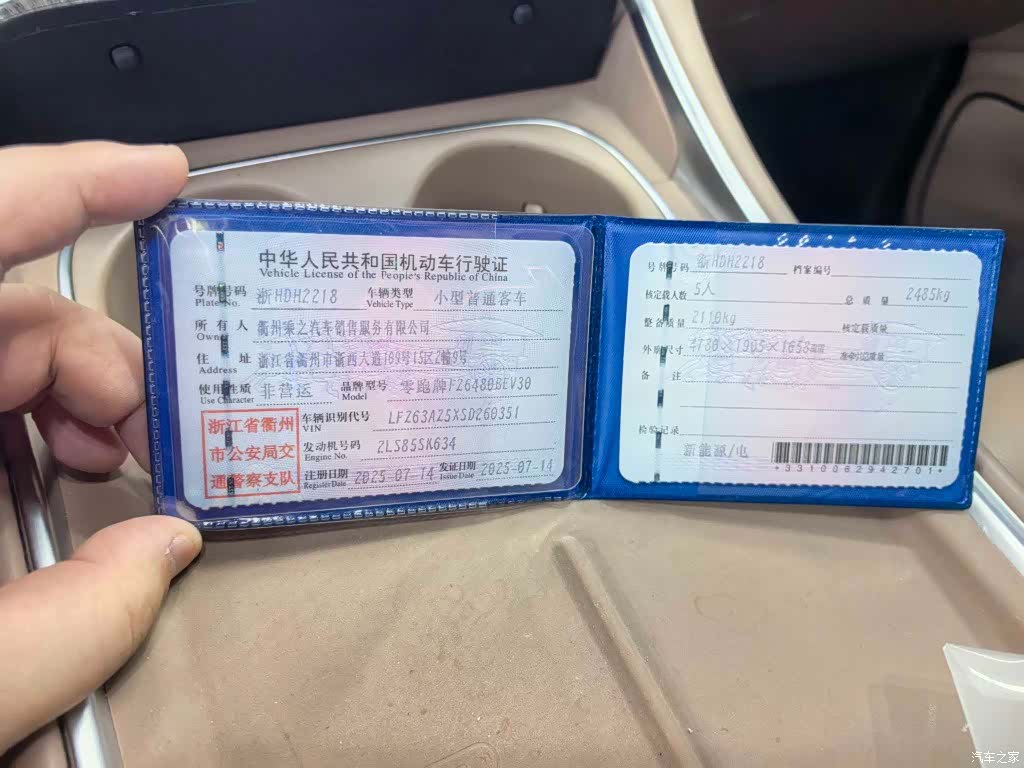 中华人民共和国机动车行驶证
Vehicle License of the People's Republic of China
号牌号码 浙HDH2218 车辆类型 小型普通客车
Plate No. Vehicle Type
所有人 衢州乘之汽车销售服务有限公司
Owner
住址 浙江省衢州市浙西大道189号15区2幢9号
Address
使用性质 非营运 品牌型号 零跑牌FZ6480BEV30
Use Character Model
浙江省衢州
市公安局交
通警察支队
车辆识别代号 LFZ63AZ5XSD260351
VIN
发动机号码 ZLS85SK634
Engine No.
注册日期 2025-07-14 发证日期 2025-07-14
Register Date Issue Date
号牌号码 浙HDH2218 档案编号
核定载人数 5人 总质量 2485kg
整备质量 2110kg 核定载质量
外廓尺寸 4780×1905×1658mm 准牵引总质量
备注
检验记录
新能源/电
*3310062942701*
汽车之家